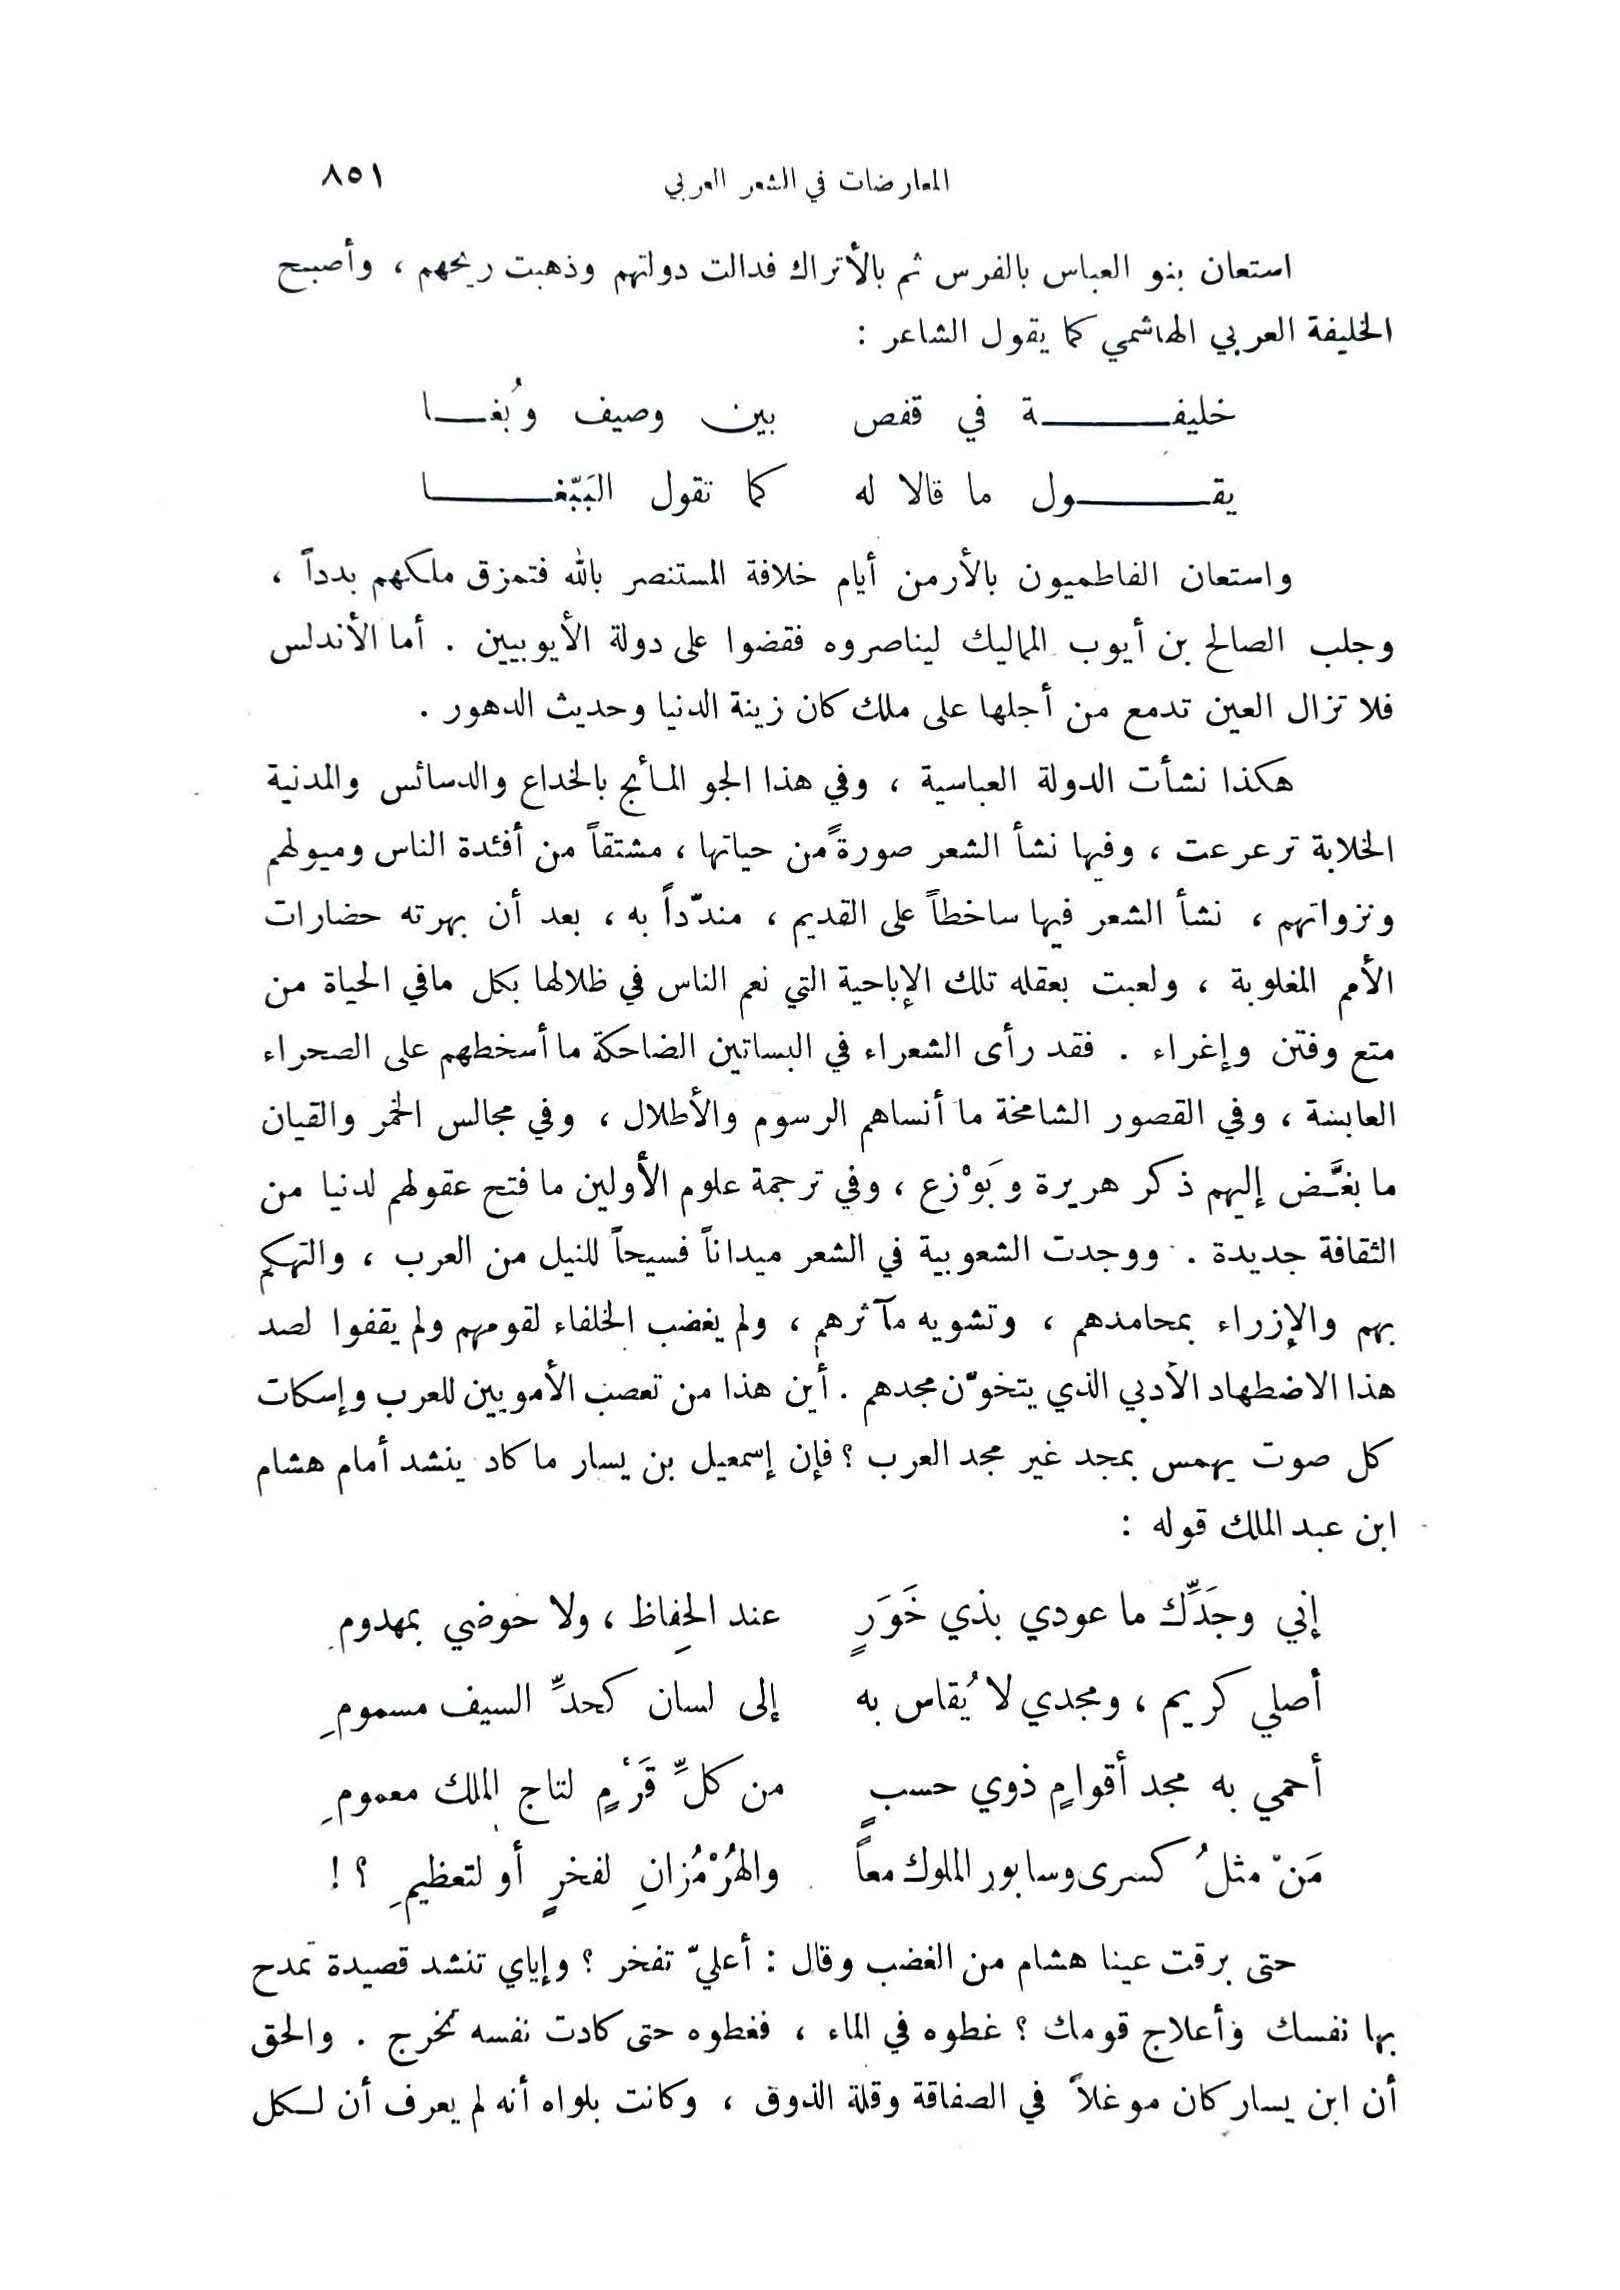 المعارضات في الشعر العربي ٨٥١
استعان بنو العباس بالفرس ثم بالأتراك فدالت دولتهم وذهبت ريحهم ، وأصبح
الخليفة العربي الهاشمي كما يقول الشاعر :
خليفــــة في قفص بين وصيف وبُغــا
يقــــول ما قالا له كما تقول البَبّغــــا
واستعان الفاطميون بالأرمن أيام خلافة المستنصر بالله فتمزق ملكهم بدداً ،
وجلب الصالح بن أيوب المماليك ليناصروه فقضوا على دولة الأيوبيين . أما الأندلس
فلا تزال العين تدمع من أجلها على ملك كان زينة الدنيا وحديث الدهور .
هكذا نشأت الدولة العباسية ، وفي هذا الجو المائج بالخداع والدسائس والمدنية
الخلابة ترعرعت ، وفيها نشأ الشعر صورةً من حياتها ، مشتقاً من أفئدة الناس وميولهم
ونزواتهم ، نشأ الشعر فيها ساخطاً على القديم ، مندّداً به ، بعد أن بهرته حضارات
الأمم المغلوبة ، ولعبت بعقله تلك الإباحية التي نعم الناس في ظلالها بكل مافي الحياة من
متع وفتن وإغراء . فقد رأى الشعراء في البساتين الضاحكة ما أسخطهم على الصحراء
العابسة ، وفي القصور الشامخة ما أنساهم الرسوم والأطلال ، وفي مجالس الخمر والقيان
ما بغَّض إليهم ذكر هريرة وبَوْزع ، وفي ترجمة علوم الأولين ما فتح عقولهم لدنيا من
الثقافة جديدة . ووجدت الشعوبية في الشعر ميداناً فسيحاً للنيل من العرب ، والتهكم
بهم والإزراء بمحامدهم ، وتشويه مآثرهم ، ولم يغضب الخلفاء لقومهم ولم يقفوا لصد
هذا الاضطهاد الأدبي الذي يتخوّن مجدهم . أين هذا من تعصب الأمويين للعرب وإسكات
كل صوت يهمس بمجد غير مجد العرب ؟ فإن إسمعيل بن يسار ما كاد ينشد أمام هشام
ابن عبد الملك قوله :
إني وجَدِّك ما عودي بذي خَوَرٍ عند الحِفاظ ، ولا حوضي بمهدوم
أصلي كريم ، ومجدي لا يُقاس به إلى لسان كحدِّ السيف مسمومِ
أحمي به مجد أقوامٍ ذوي حسبٍ من كلِّ قَرْمٍ لتاج الملك معمومِ
مَنْ مثلُ كسرى وسابور الملوك معاً والهُرْمُزانِ لفخرٍ أو لتعظيمِ ؟ !
حتى برقت عينا هشام من الغضب وقال : أعليّ تفخر ؟ وإياي تنشد قصيدة تمدح
بها نفسك وأعلاج قومك ؟ غطوه في الماء ، فغطوه حتى كادت نفسه تخرج . والحق
أن ابن يسار كان موغلاً في الصفاقة وقلة الذوق ، وكانت بلواه أنه لم يعرف أن لكل